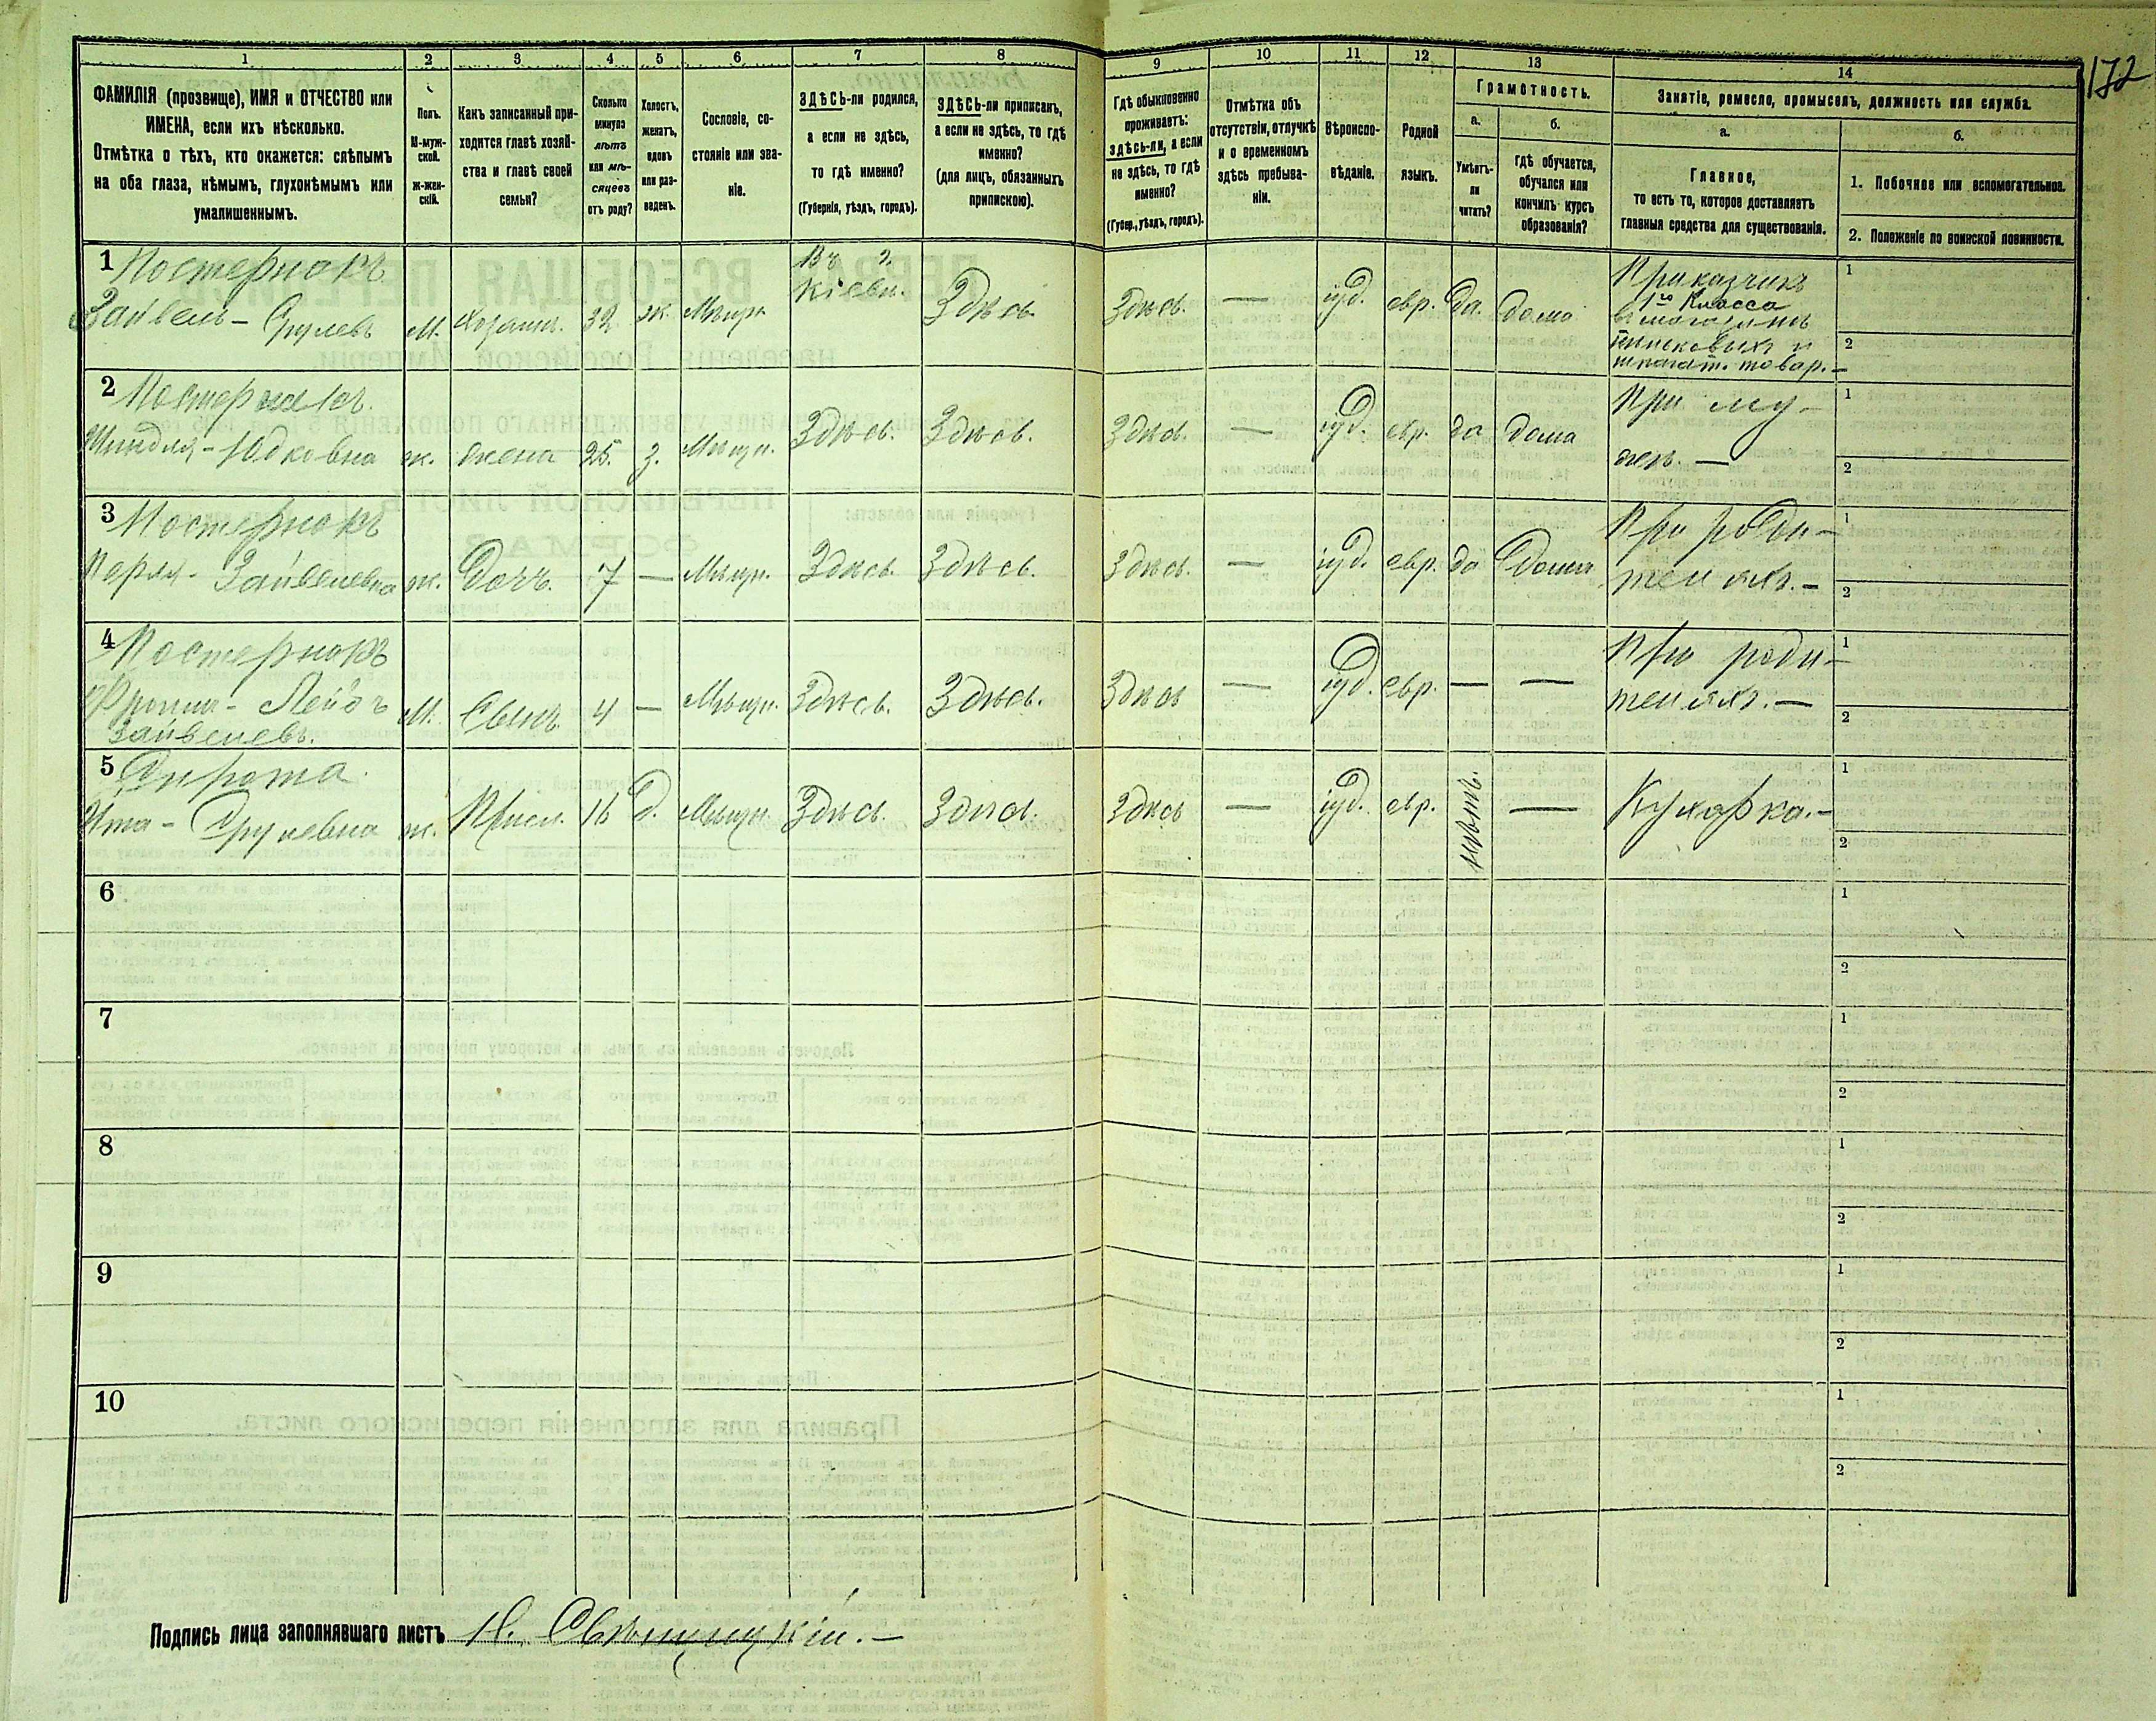 172
1 2 3 4 5 6 7 8 9 10 11 12 13 14
ФАМИЛІЯ (прозвище), ИМЯ и ОТЧЕСТВО или
ИМЕНА, если ихъ нѣсколько.
Отмѣтка о тѣхъ, кто окажется: слѣпымъ
на оба глаза, нѣмымъ, глухонѣмымъ или
умалишеннымъ.
Полъ.
М-муж-
ской.
ж-жен-
скій.
Какъ записанный при-
ходится главѣ хозяй-
ства и главѣ своей
семьи?
Сколько
минуло
лѣтъ
или мѣ-
сяцевъ
отъ роду?
Холостъ,
женатъ,
вдовъ
или раз-
веденъ.
Сословіе, со-
стояніе или зва-
ніе.
ЗДѢСЬ-ли родился,
а если не здѣсь,
то гдѣ именно?
(Губернія, уѣздъ, городъ).
ЗДѢСЬ-ли приписанъ,
а если не здѣсь, то гдѣ
именно?
(для лицъ, обязанныхъ
припискою).
Гдѣ обыкновенно
проживаетъ:
здѣсь-ли, а если
не здѣсь, то гдѣ
именно?
(Губер., уѣздъ, городъ).
Отмѣтка объ
отсутствіи, отлучкѣ
и о временномъ
здѣсь пребыва-
ніи.
Вѣроиспо-
вѣданіе.
Родной
языкъ.
Грамотность.
а.
Умѣетъ-
ли
читать?
б.
гдѣ обучается,
обучался или
кончилъ курсъ
образованія?
Занятіе, ремесло, промыселъ, должность или служба.
а.
Главное,
то есть то, которое доставляетъ
главныя средства для существованія.
б.
1. Побочное или вспомогательное.
2. Положеніе по воинской повинности.
1 Постернакъ
Зайвель - Срулевъ
М. хозяин. 32 ж. Мѣщн
Въ г.
Кіевѣ.
Здѣсь
Здѣсь. — іуд. евр. Да. дома
Приказчикъ
1го Класса
товар. —
1
2
2 Постернакъ.
Шиндля - Юдковна ж. жена 25. з. Мѣщн. Здѣсь. Здѣсь.
Здѣсь. — іуд. евр. да дома
При му-
жѣ. —
1
2
3 Постернакъ
Перля - Зайвелевна ж. Дочь. 7 — Мѣщн. Здѣсь Здѣсь.
Здѣсь. — іуд. евр. да Дома
При роди-
теляхъ. —
1
2
4 Постернакъ
Лейбъ
Зайвелевъ.
М. Сынъ 4 — Мѣщн. Здѣсь. Здѣсь.
Здѣсь — іуд. евр. — —
При роди-
теляхъ. —
1
2
5 Сирота.
Ита - Срулевна ж. Присл. 16 д. Мѣщн. Здѣсь. Здѣсь.
Здѣсь — іуд. евр. нѣтъ. —
Кухарка. —
1
2
6
1
2
7
1
2
8
1
2
9
1
2
10
1
2
Подпись лица заполнявшаго листъ